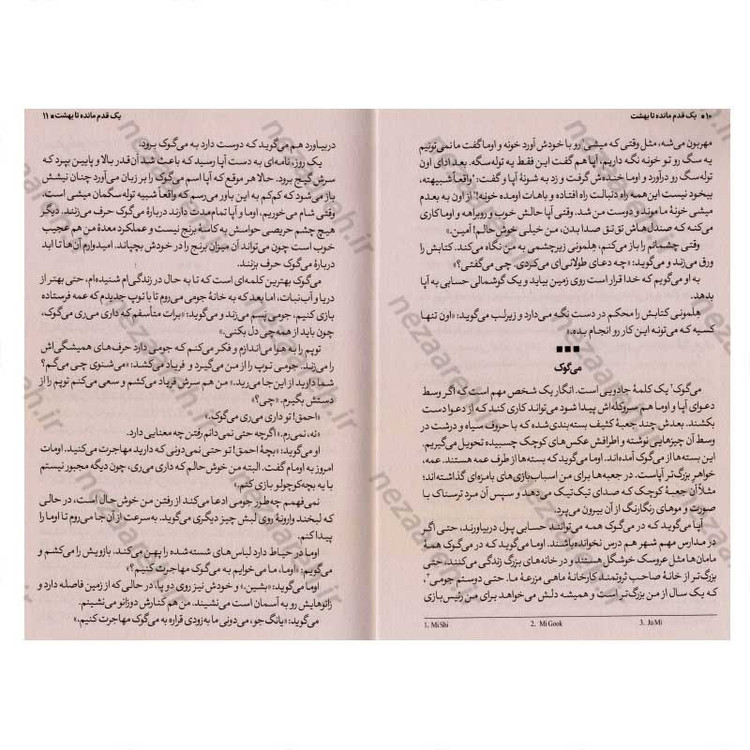 ۱۰ ■ یک قدم مانده تا بهشت
مهربون می‌شه، مثل وقتی که میشی¹ رو با خودش آورد خونه و اوما گفت ما نمی‌تونیم
یه سگ رو تو خونه نگه داریم، آپا هم گفت این فقط یه توله‌سگه. بعد ادای اون
توله‌سگ رو درآورد و اوما خنده‌ش گرفت و زد به شونهٔ آپا و گفت: «واقعاً شبیهته،
بیخود نیست این همه راه دنبالت راه افتاده و باهات اومده خونه!» از اون به بعدم
میشی خونهٔ ما موند و دوست من شد. وقتی آپا حالش خوب و روبراهه و اوما کاری
می‌کنه که صندل هاش تق‌تق صدا بدن، من خیلی خوش حالم! آمین.»
وقتی چشمانم را باز می‌کنم، هلمونی زیرچشمی به من نگاه می‌کند. کتابش را
ورق می‌زند و می‌گوید: «چه دعای طولانی‌ای می‌کردی. چی می‌گفتی؟»
به او می‌گویم که خدا قرار است روی زمین بیاید و یک گوشمالی حسابی به آپا
بدهد.
هلمونی کتابش را محکم در دست نگه می‌دارد و زیرلب می‌گوید: «اون تنها
کسیه که می‌تونه این کار رو انجام بده.»
■ ■ ■
می‌گوک
می‌گوک² یک کلمهٔ جادویی است. انگار یک شخص مهم است که اگر وسط
دعوای آپا و اوما هم سروکله‌اش پیدا شود می‌تواند کاری کند که از دعوا دست
بکشند. بعدش چند جعبهٔ کثیف بسته‌بندی شده‌که با حروف سیاه و درشت در
وسط آن چیزهایی نوشته و اطرافش عکس‌های کوچک چسبیده تحویل می‌گیریم.
این بسته‌ها از می‌گوک آمده‌اند. اوما می‌گوید که بسته‌ها از طرف عمه هستند. عمه،
خواهرِ بزرگ‌تر آپاست. در جعبه‌ها برای من اسباب‌بازی‌های بامزه‌ای گذاشته‌اند؛
مثلاً آن جعبهٔ کوچک که صدای تیک‌تیک می‌دهد و سپس آن مرد ترسناک با
صورت و موهای رنگارنگ از آن بیرون می‌پرد.
آپا می‌گوید که در می‌گوک همه می‌توانند حسابی پول دربیاورند، حتی اگر
در مدارس مهم شهر هم درس نخوانده‌باشند. اوما می‌گوید که در می‌گوک همهٔ
مامان‌ها مثل عروسک خوشگل هستند و در خانه‌های بزرگ زندگی می‌کنند، حتی
بزرگ‌تر از خانهٔ صاحب ثروتمند کارخانهٔ ماهی مزرعهٔ ما. حتی دوستم جومی³،
که یک سال از من بزرگ‌تر است و همیشه دلش می‌خواهد برای من رئیس‌بازی
1. Mi Shi
2. Mi Gook
3. Ju Mi
یک قدم مانده تا بهشت ■ ۱۱
دربیاورد هم می‌گوید که دوست دارد به می‌گوک برود.
یک روز، نامه‌ای به دست آپا رسید که باعث شد آن‌قدر بالا و پایین بپرد که
سرش گیج برود. حالا هر موقع که آپا اسم می‌گوک را بر زبان می‌آورد چنان نیشش
باز می‌شود که کم‌کم به این باور می‌رسم که واقعاً شبیه توله‌سگمان میشی است.
وقتی شام می‌خوریم، اوما و آپا تمام مدت دارند دربارهٔ می‌گوک حرف می‌زنند. دیگر
هیچ چشم حریصی حواسش به کاسهٔ برنج نیست و عملکرد معدهٔ من هم عجیب
خوب است چون می‌تواند آن میزان برنج را در خودش بچپاند. امیدوارم آن ها تا ابد
دربارهٔ می‌گوک حرف بزنند.
می‌گوک بهترین کلمه‌ای است که تا به حال در زندگی‌ام شنیده‌ام، حتی بهتر از
دریا و آب‌نبات. اما بعد که به خانهٔ جومی می‌روم تا با توپ جدیدم که عمه فرستاده
بازی کنیم، جومی پسم می‌زند و می‌گوید: «برات متأسفم که داری می‌ری می‌گوک،
چون باید از همه‌چی دل بکنی.»
توپم را به هوا می‌اندازم و فکر می‌کنم که جومی دارد حرف‌های همیشگی‌اش
را می‌زند. جومی توپ را از من می‌گیرد و فریاد می‌کشد: «می‌شنوی چی می‌گم؟
شما دارید از این‌جا می‌رید.» من هم سرش فریاد می‌کشم و سعی می‌کنم توپم را از
دستش بگیرم. «چی؟»
«احمق! تو داری می‌ری می‌گوک.»
«نه، نمی‌رم.» اگرچه حتی نمی‌دانم رفتن چه معنایی دارد.
او می‌گوید: «بچهٔ احمق! تو حتی نمی‌دونی که دارید مهاجرت می‌کنید. اومات
امروز به اومام گفت. البته من خوش حالم که داری می‌ری، چون دیگه مجبور نیستم
با یه بچه‌کوچولو بازی کنم.»
نمی‌فهمم چه‌طور جومی ادعا می‌کند از رفتن من خوش‌حال است، در حالی
که لبخند وارونهٔ روی لبش چیز دیگری می‌گوید. به‌سرعت از آن جا می‌روم تا اوما را
پیدا کنم.
اوما در حیاط دارد لباس های شسته‌شده را پهن می‌کند. بازویش را می‌کشم و
می‌گویم: «اوما، ما می‌خوایم به می‌گوک مهاجرت کنیم؟»
اوما می‌گوید: «بشین.» و خودش نیز روی دو پا، در حالی که از زمین فاصله دارد و
زانوهایش رو به آسمان است می‌نشیند. من هم کنارش دوزانو می‌نشینم.
می‌گوید: «یانگ‌جو، می‌دونی ما به‌زودی قراره به می‌گوک مهاجرت کنیم.»
nezaareh.ir